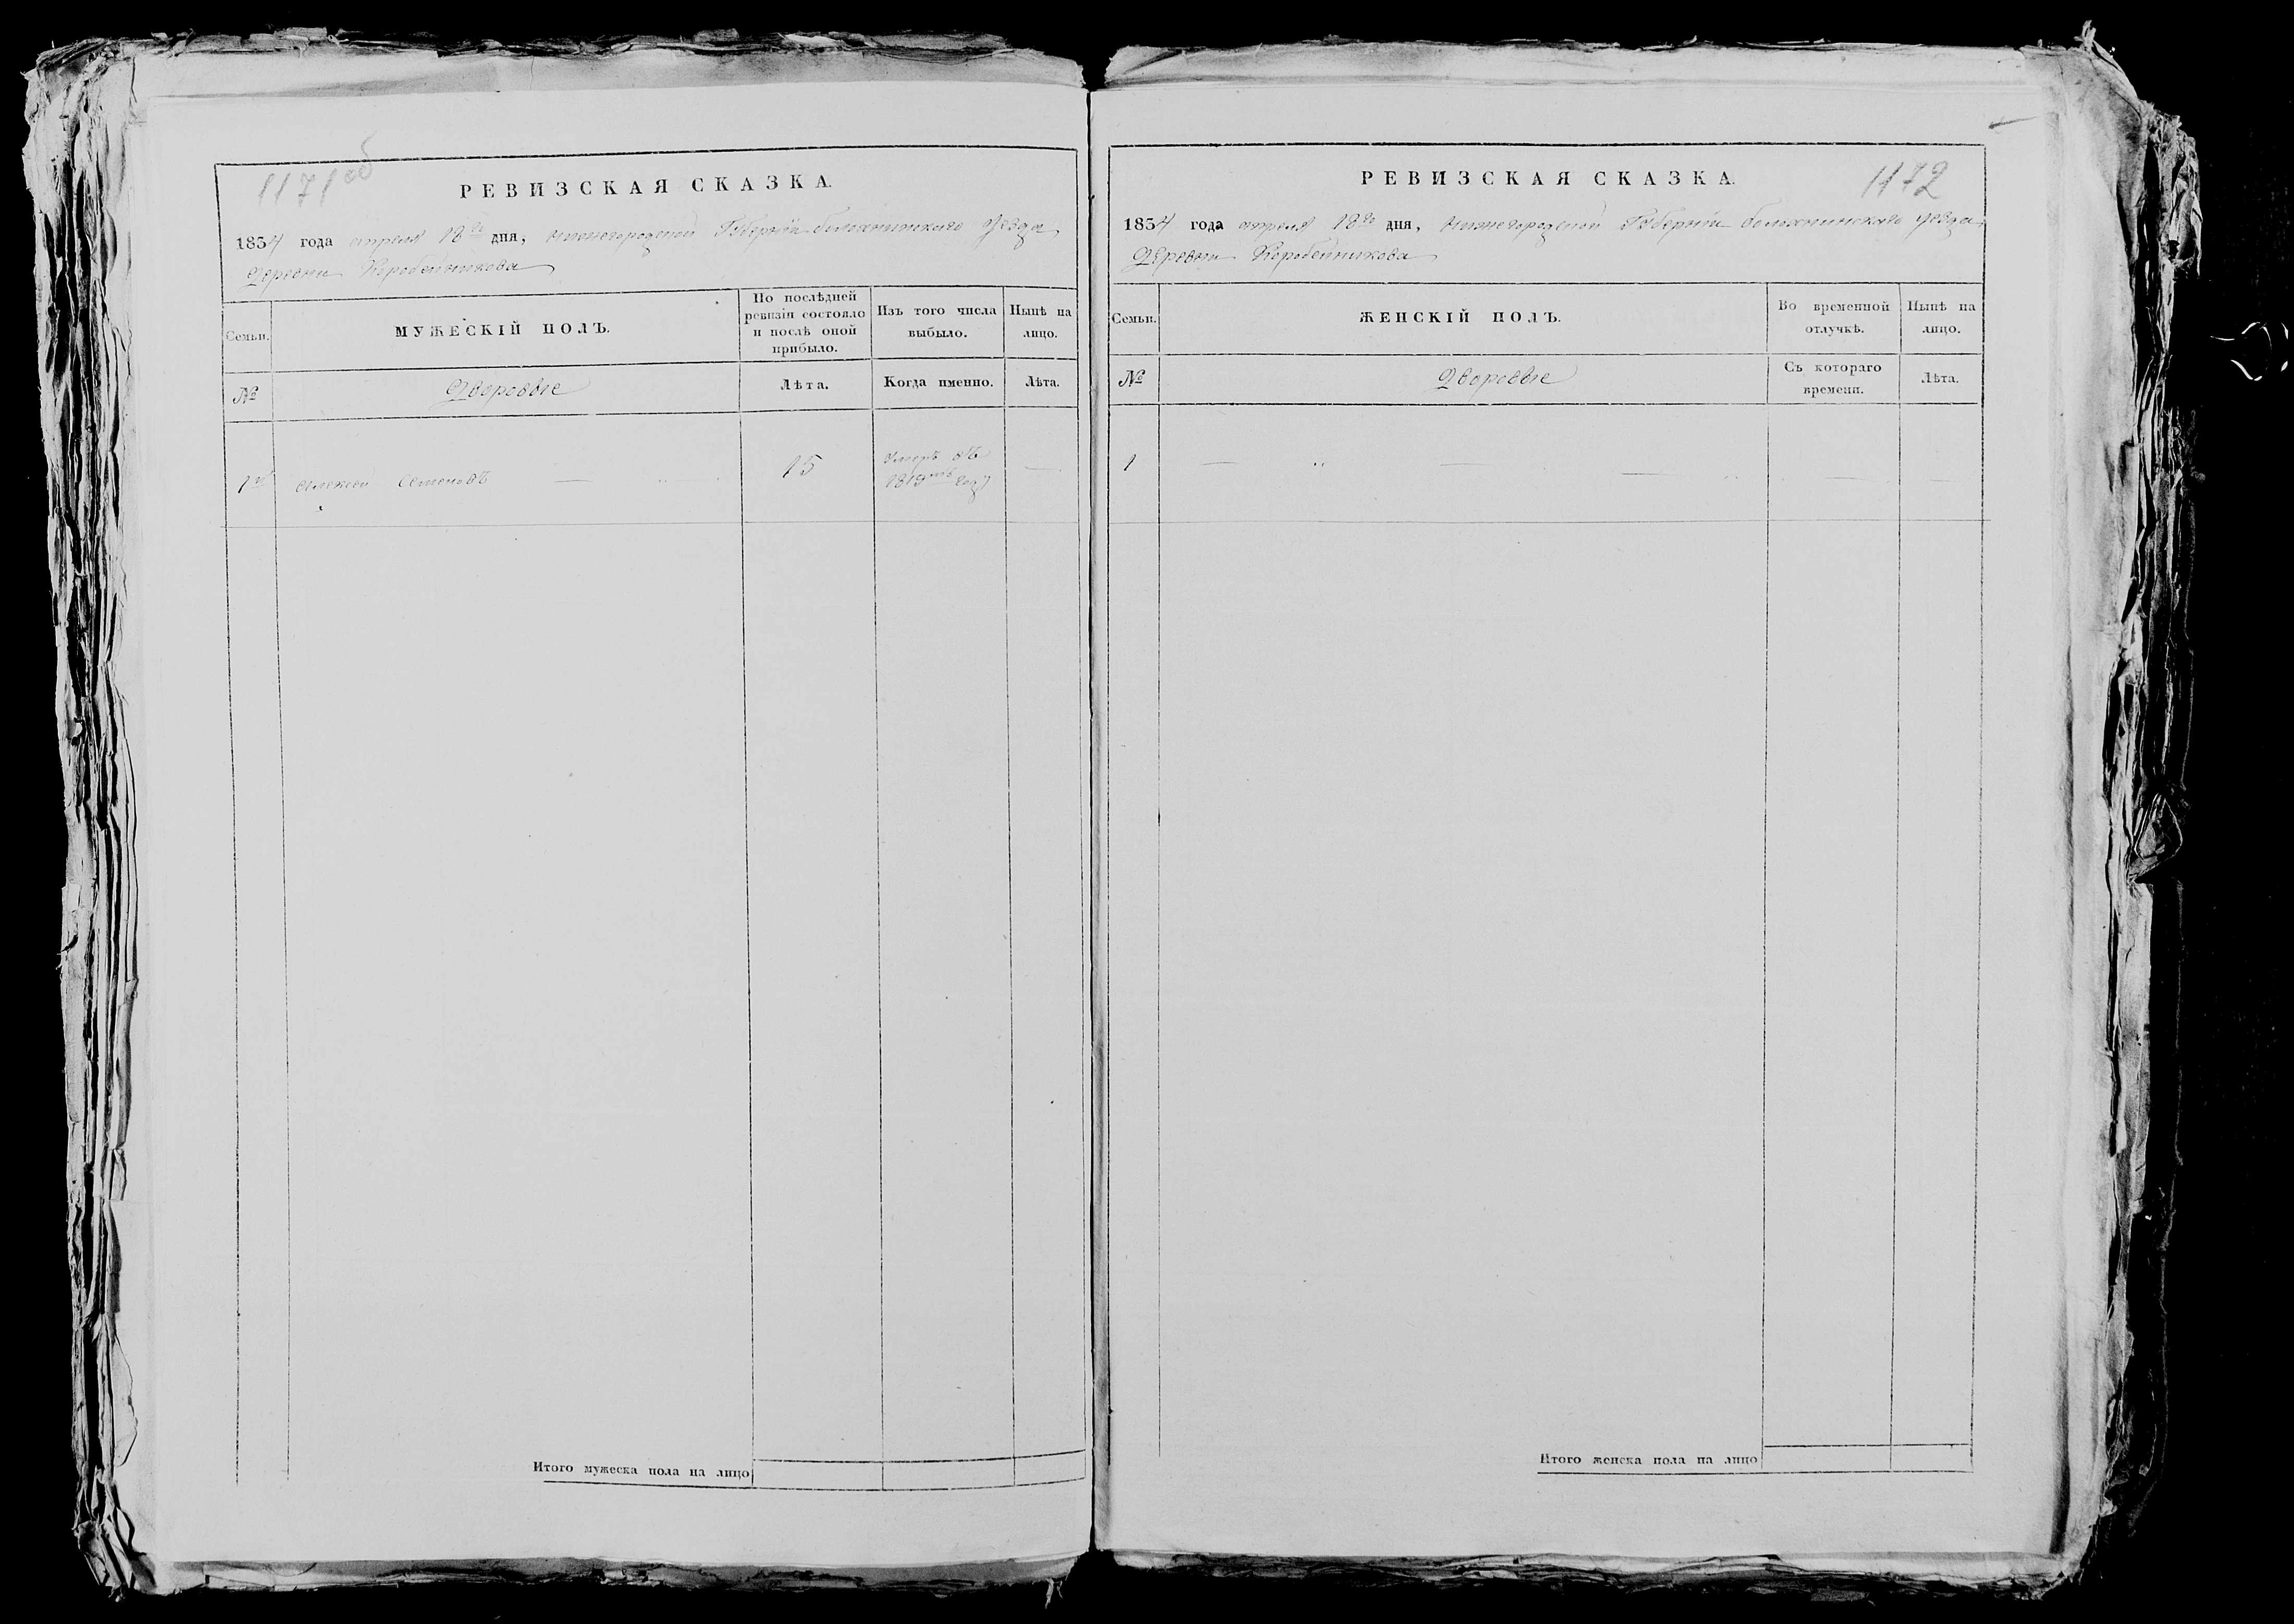 1171об
РЕВИЗСКАЯ СКАЗКА.
1834 года апреля 18го дня, нижегородской Губернiи балахнинскаго уезда
Деревни Коробейникова
Семьи.
МУЖЕСКІЙ ПОЛЪ.
По послѣдней
ревизіи состояло
и послѣ оной
прибыло.
Изъ того числа
выбыло.
Нынѣ на
лицо.
№
Дворовые
Лѣта.
Когда именно.
Лѣта.
1й
Алексей Семеновъ
15
Умеръ въ
1819мъ году
Итого мужеска пола на лицо
1172
РЕВИЗСКАЯ СКАЗКА.
1834 года апреля 18го дня, Нижегородской Губернiи балахнинскаго уезда
Деревни Коробейникова
Семьи.
ЖЕНСКІЙ ПОЛЪ.
Во временной
отлучкѣ.
Нынѣ на
лицо.
№
Дворовые
Съ котораго
времени.
Лѣта.
1
Итого женска пола на лицо